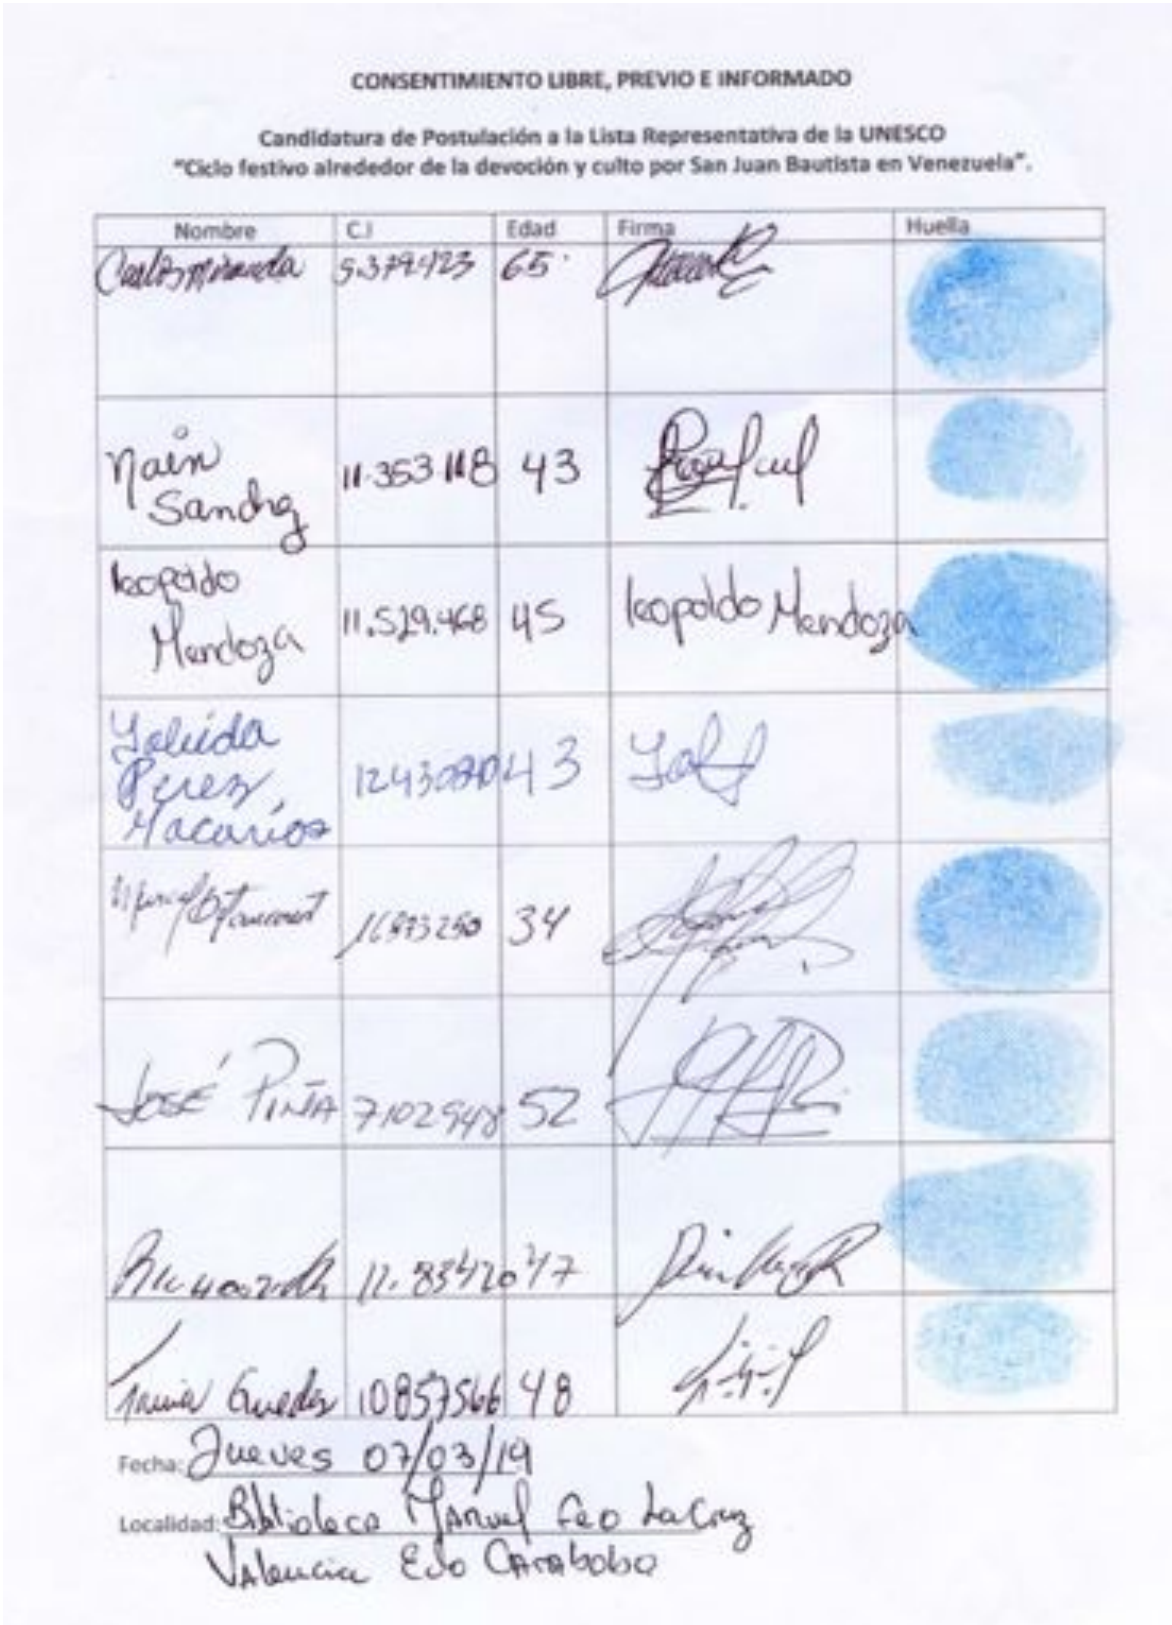 CONSENTIMIENTO LIBRE, PREVIO E INFORMADO
Candidatura de Postulación a la Lista Representativa de la UNESCO
"Ciclo festivo alrededor de la devoción y culto por San Juan Bautista en Venezuela".
Nombre C.I Edad Firma Huella
Carlos Miranda 5.379.423 65
Nain
Sanchez 11.353 118 43
leopoldo
Mendoza 11.529.468 45 leopoldo Mendoza
Perez
Macarios 43
34
JOSÉ PIÑA 7102948 52
47
Guedez 10857566 48
Fecha: Jueves 07/03/19
Localidad: Biblioteca Manuel Feo La Cruz
Valencia Edo Carabobo